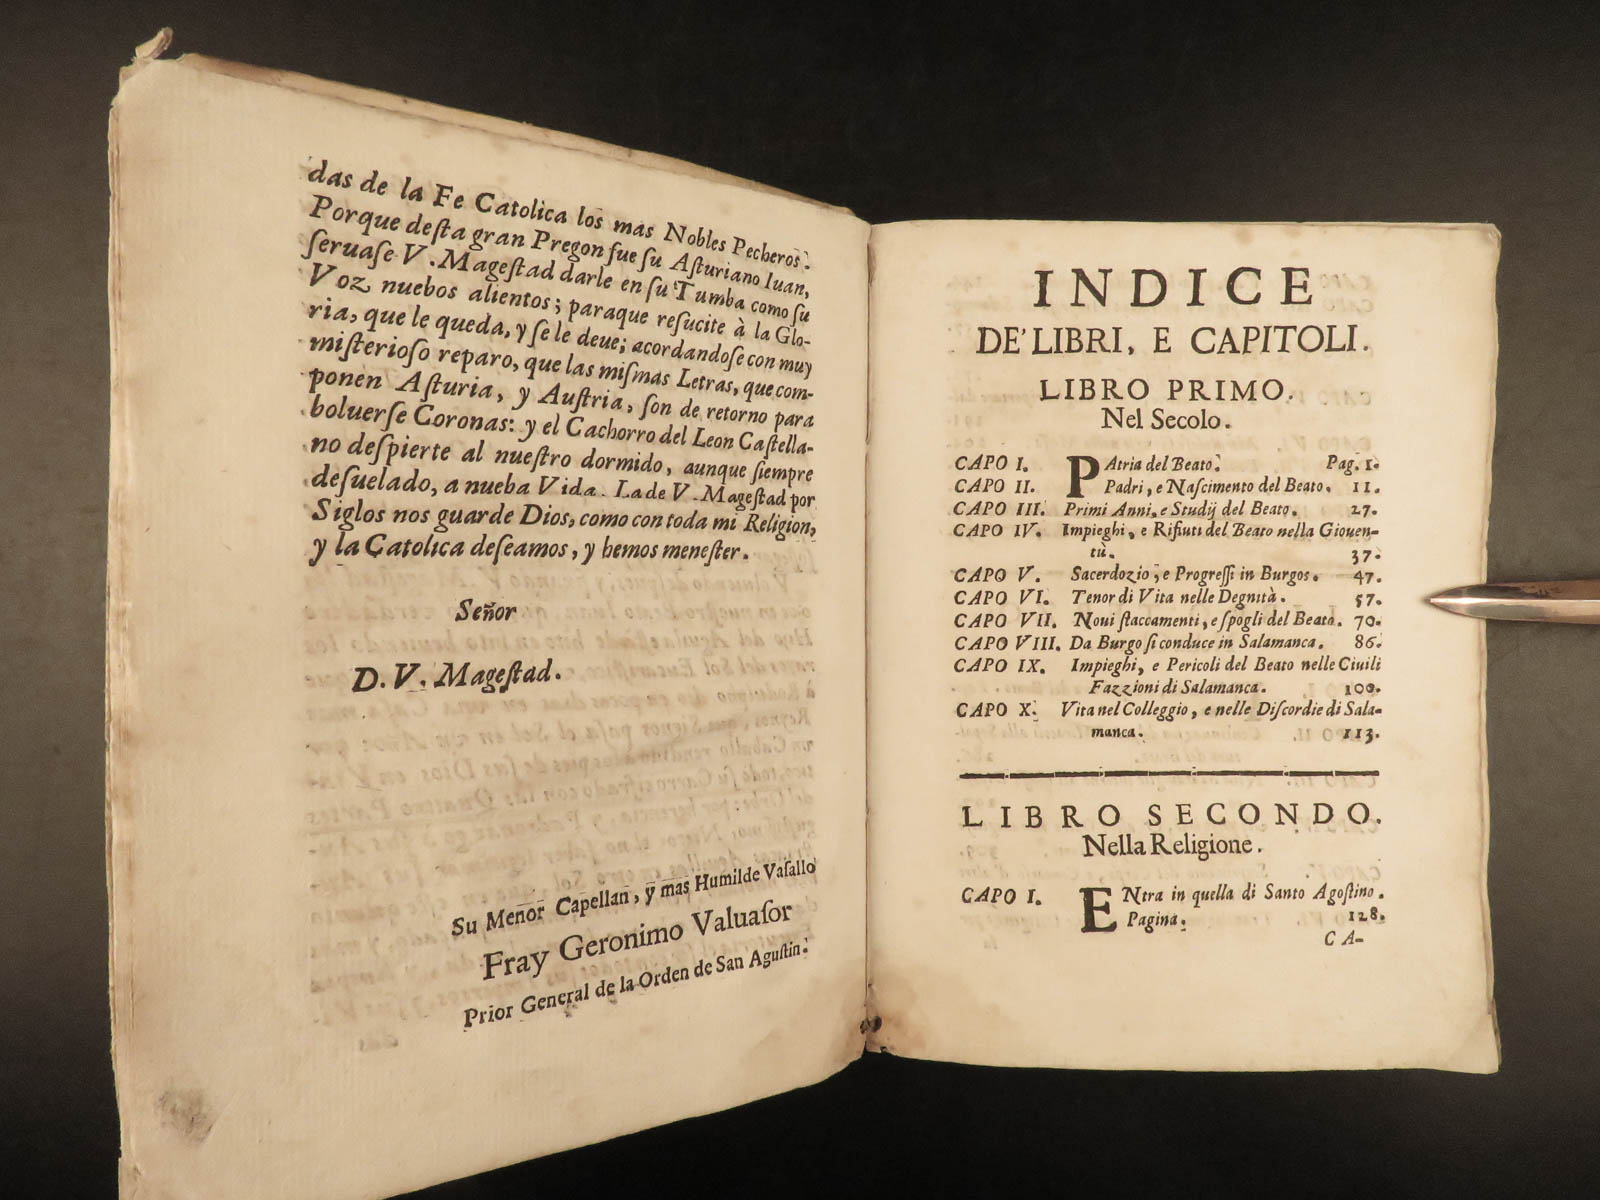 das de la Fe Catolica los mas Nobles Pecheros.
Porque deſta gran Pregon fue ſu Aſturiano Iuan,
ſeruaſe V. Mageſtad darle en ſu Tumba como ſu
Voz nuebos alientos; paraque reſucite à la Glo-
ria, que le queda, y ſe le deue; acordandoſe con muy
miſterioſo reparo, que las miſmas Letras, que com-
ponen Aſturia, y Auſtria, ſon de retorno para
boluerſe Coronas: y el Cachorro del Leon Caſtella-
no deſpierte al nueſtro dormido, aunque ſiempre
deſuelado, a nueba Vida. La de V. Mageſtad por
Siglos nos guarde Dios, como con toda mi Religion,
y la Catolica deſeamos, y hemos meneſter.
Señor
D. V. Mageſtad.
Su Menor Capellan, y mas Humilde Vaſallo
Fray Geronimo Valuaſor
Prior General de la Orden de San Aguſtin.
INDICE
DE' LIBRI, E CAPITOLI.
LIBRO PRIMO.
Nel Secolo.
CAPO I. PAtria del Beato. Pag. 1.
CAPO II. Padri, e Naſcimento del Beato. 11.
CAPO III. Primi Anni, e Studij del Beato. 27.
CAPO IV. Impieghi, e Rifiuti del Beato nella Giouen-
tù. 37.
CAPO V. Sacerdozio, e Progreſſi in Burgos. 47.
CAPO VI. Tenor di Vita nelle Degnità. 57.
CAPO VII. Noui ſtaccamenti, e ſpogli del Beato. 70.
CAPO VIII. Da Burgo ſi conduce in Salamanca. 86.
CAPO IX. Impieghi, e Pericoli del Beato nelle Ciuili
Fazzioni di Salamanca. 100.
CAPO X. Vita nel Colleggio, e nelle Diſcordie di Sala-
manca. 113.
LIBRO SECONDO.
Nella Religione.
CAPO I. ENtra in quella di Santo Agoſtino.
Pagina. 128.
CA-